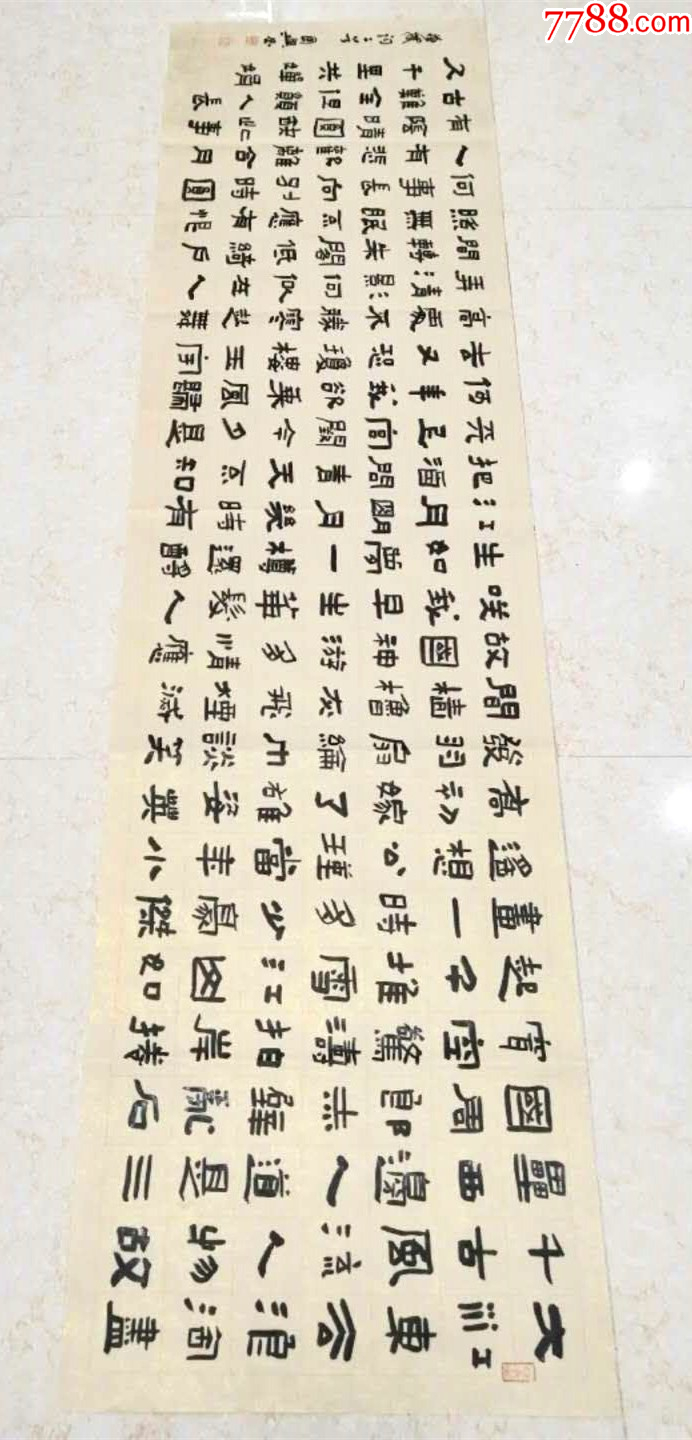 7788.com
大江東去浪淘盡
千古風流人物故
壘西邊人道是三
國周郎赤壁亂石
穿空驚濤拍岸捲
起千堆雪江山如
畫一時多少豪傑
遙想公瑾當年小
喬初嫁了雄姿英
發羽扇綸巾談笑
間檣櫓灰飛煙滅
故國神游多情應
笑我早生華髮人
生如夢一樽還酹
江月明月幾時有
把酒問青天不知
天上宮闕今夕是
何年我欲乘風歸
去又恐瓊樓玉宇
高處不勝寒起舞
弄清影何似在人
間轉朱閣低綺戶
照無眠不應有恨
何事長向別時圓
人有悲歡離合月
有陰晴圓缺此事
古難全但願人長
久千里共嬋娟
詞二首